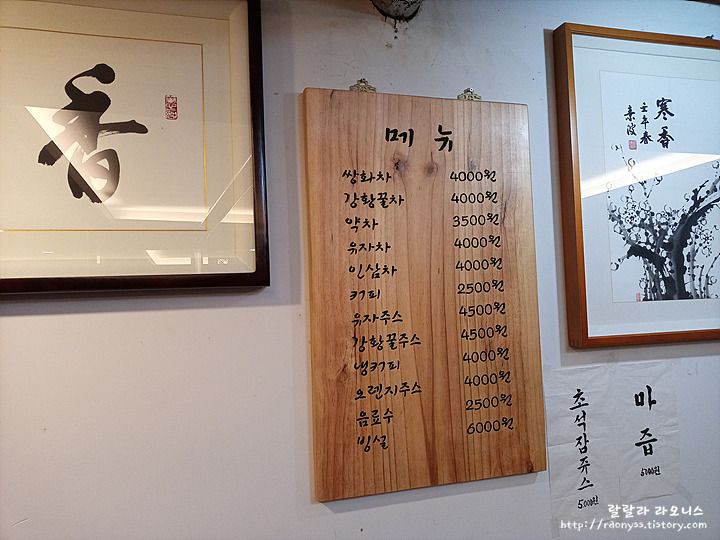 香
메뉴
쌍화차 4000원
강황꿀차 4000원
약차 3500원
유자차 4000원
인삼차 4000원
커피 2500원
유자주스 4500원
강황꿀주스 4500원
냉커피 4000원
오렌지주스 4000원
음료수 2500원
빙설 6000원
寒香
壬午春
초석잠쥬스
5,000원
마즙
5,000원
랄랄라 라오니스
http://raonyss.tistory.com